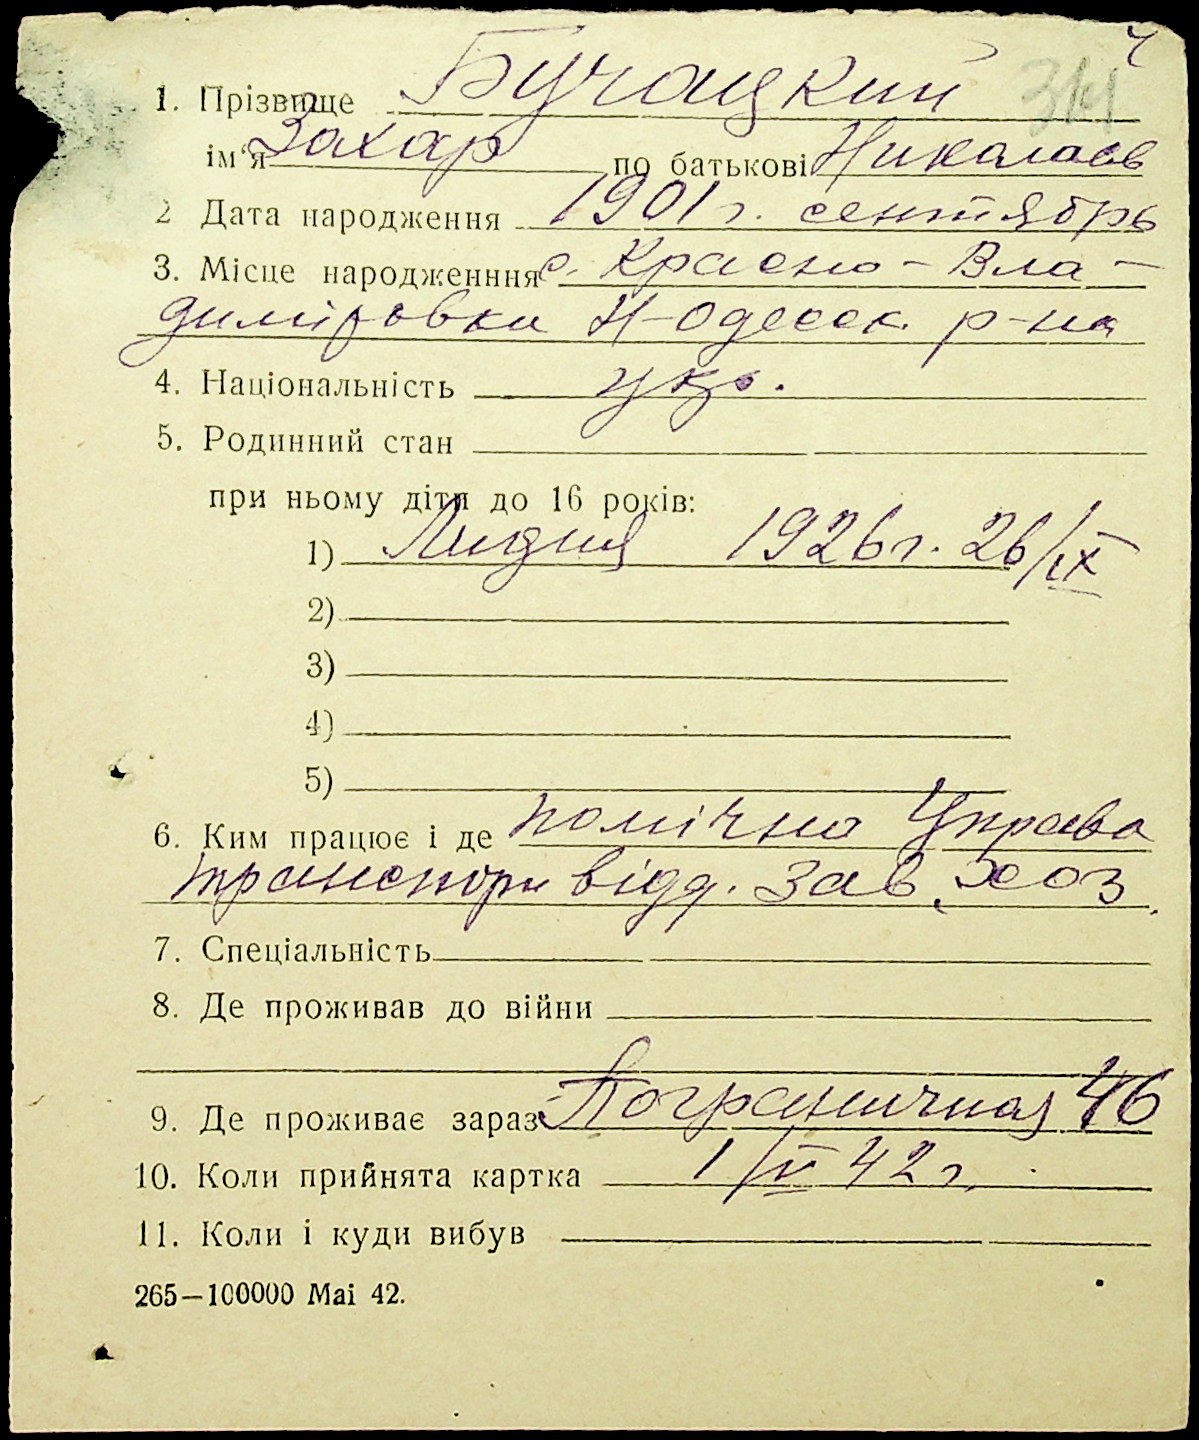 ч
314
1. Прізвище Бучацкий
ім'я Захар по батькові Николаев
2 Дата народження 1901 г. сентябрь
3. Місце народженння с. Красно-Вла-
димировка Н-Одесск. р-на
4. Національність укр.
5. Родинний стан
при ньому діти до 16 років:
1) Лидия 1926 г. 26/IX
2)
3)
4)
5)
6. Ким працює і де помічна Управа
транспорт відд. Зав. хоз.
7. Спеціальність
8. Де проживав до війни
9. Де проживає зараз Пограничная 46
10. Коли прийнята картка 1/VI 42 г.
11. Коли і куди вибув
265—100000 Маі 42.